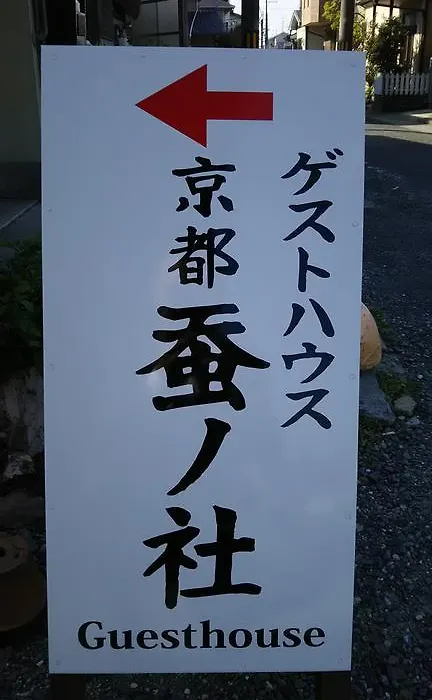 ゲストハウス
京都蚕ノ社
Guesthouse